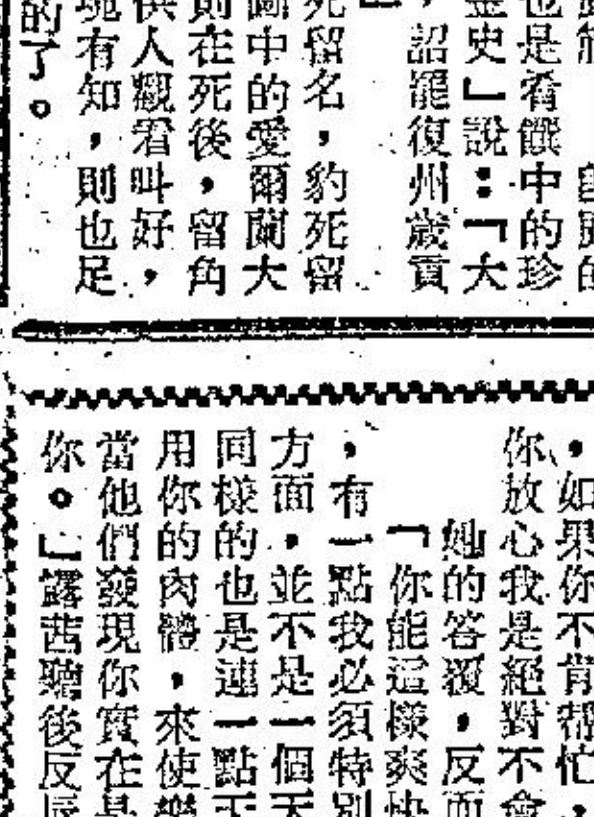 也是肴饌中的珍
史」說：「大
，詔罷復州歲貢
」
死留名，豹死留
圖中的愛爾蘭大
則在死後，留角
供人觀看叫好，
塊有知，則也足
的了。
，如果你不肯帮忙，
你放心我是絕對不會
她的答覆，反而
「你能這樣爽快
，有一點我必須特別
方面，並不是一個天
同樣的也是連一點下
用你的肉體，來使
當他們發現你實在是
你。」露茜聽後反